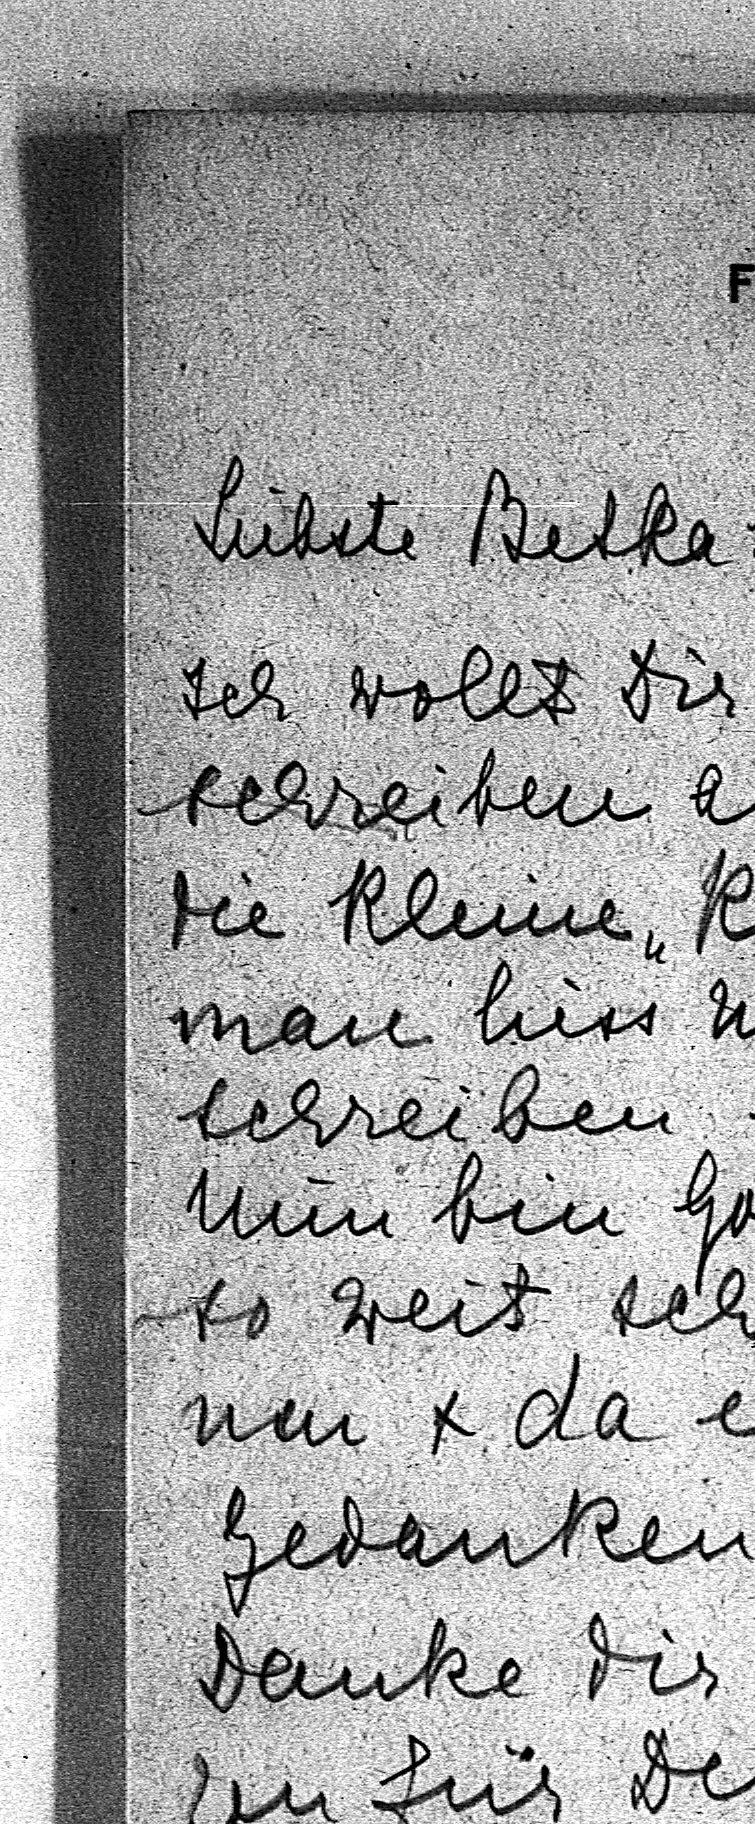 F
Liebste Betka:
Ich wollt Dir
schreiben a
die kleine „K
man liess n
schreiben
Nun bin Go
so weit sch
nen & da e
Gedanken
Danke Dir
für De